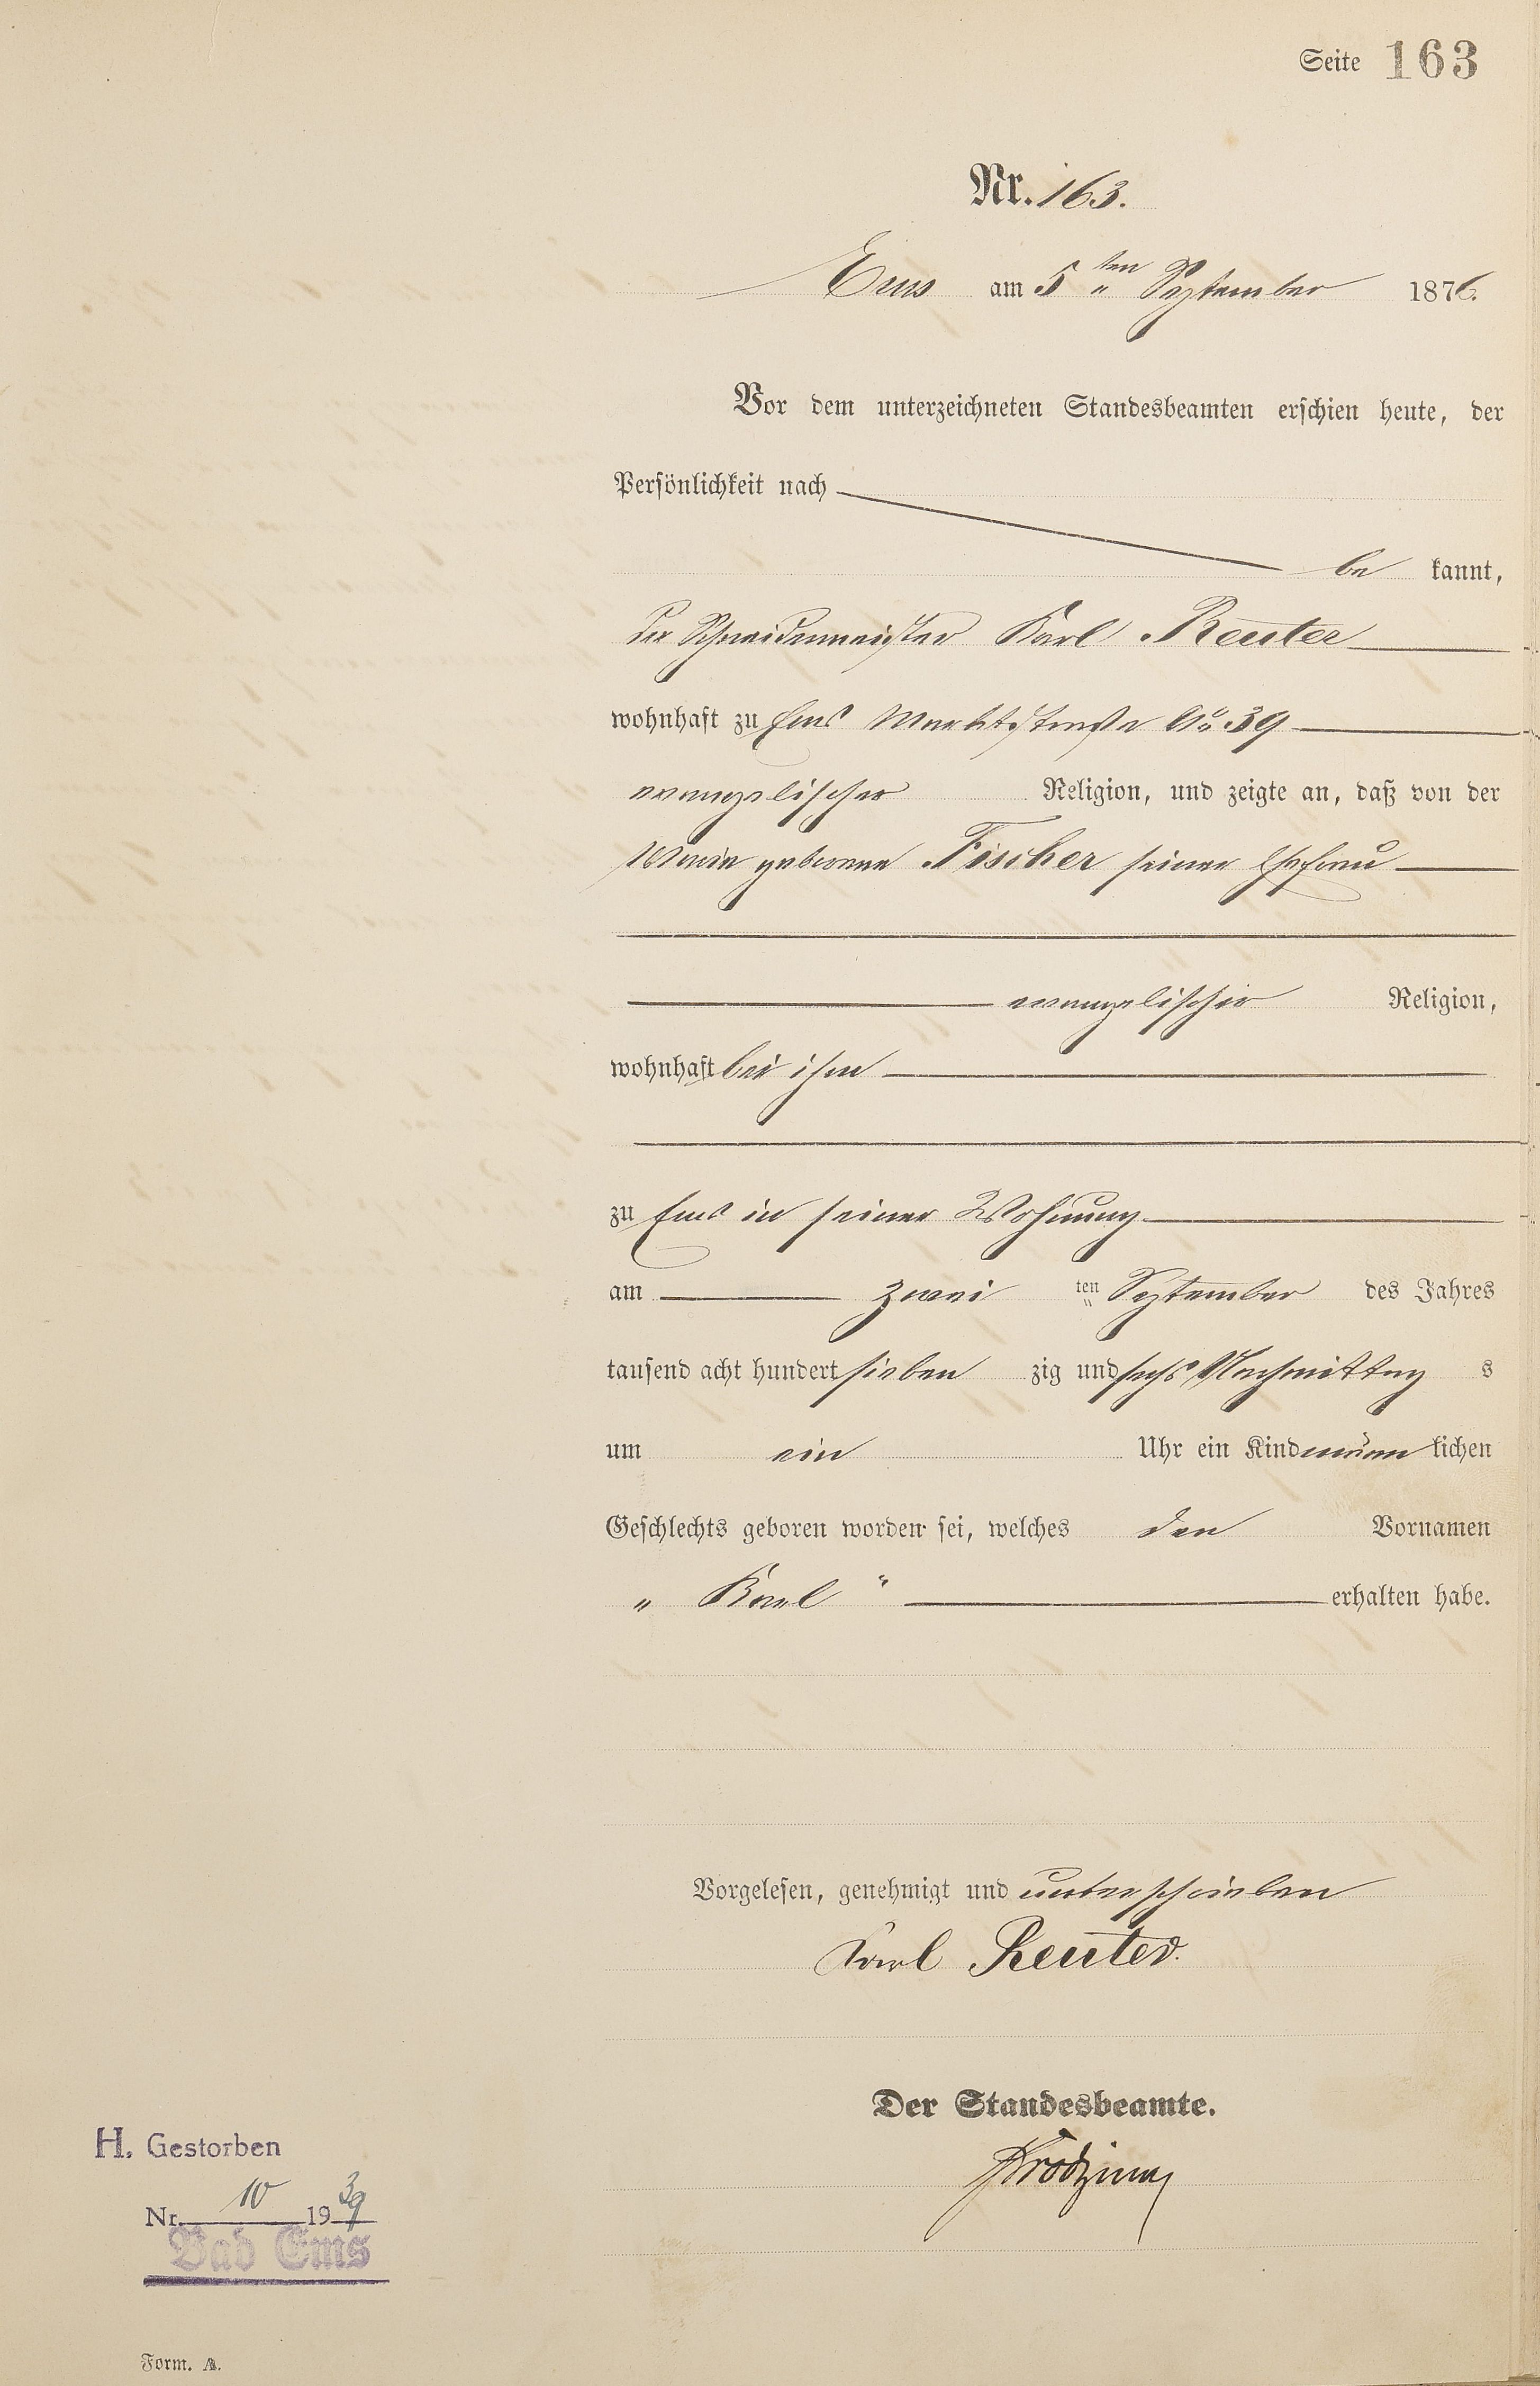 Seite 163
Nr. 163.
Ems am 5 ten September 1876.
Vor dem unterzeichneten Standesbeamten erschien heute, der
Persönlichkeit nach
be kannt,
der Schneidermeister Karl Reuter
wohnhaft zu Ems Marktstraße No 39
evangelischer Religion, und zeigte an, daß von der
Marie geborene Fischer seiner Ehefrau
evangelischer Religion,
wohnhaft bei ihm
zu Ems in seiner Wohnung
am zwei ten September des Jahres
tausend acht hundert sieben zig und sechs Nachmittag s
um ein Uhr ein Kind männ lichen
Geschlechts geboren worden sei, welches den Vornamen
„ Karl “ erhalten habe.
Vorgelesen, genehmigt und unterschrieben
Karl Reuter.
Der Standesbeamte.
H. Gestorben
Nr. 10 1939
Bad Ems
Form. A.